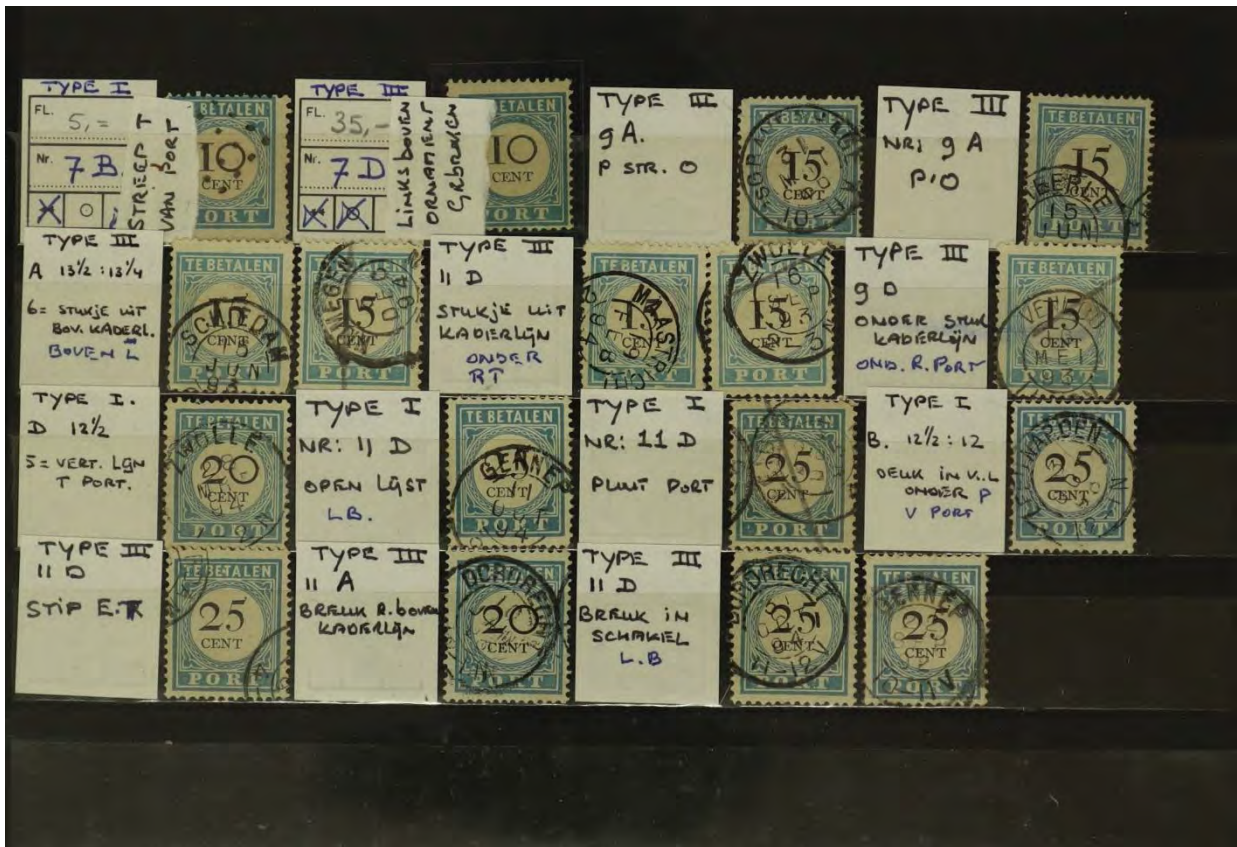 TYPE I
FL. 5,=
Nr. 7 B
STREEP T
VAN PORT
BETALEN
10
CENT
PORT
TYPE III
FL. 35,-
Nr. 7 D
LINKSBOVEN
ORNAMENT
GEBROKEN
ETALEN
10
CENT
PORT
TYPE III
9 A.
P STR. O
TE BETALEN
15
CENT
PORT
TYPE III
NR: 9 A
P'O
TE BETALEN
15
CENT
15
JUN
TYPE III
A 13½ : 13¼
6= STUKJE UIT
BOV. KADERL.
BOVEN L
TE BETALEN
15
CENT
SCHIEDAM
JUN
93
TE BETALEN
15
CENT
PORT
TYPE III
11 D
STUKJE UIT
KADERLIJN
ONDER
RT
TE BETALEN
15
CENT
MAASTRICHT
PORT
TE BETALEN
ZWOLLE
16
15
CENT
93
PORT
TYPE III
9 D
ONDER STUK
KADERLIJN
OND. R. PORT
TE BETALEN
15
CENT
MEI
93
TYPE I.
D 12½
5= VERT. LIJN
T PORT.
TE BETALEN
ZWOLLE
20
CENT
94
PORT
TYPE I
NR: 11 D
OPEN LIJST
LB.
TE BETALEN
GENNEP
CENT
94
TYPE I
NR: 11 D
PUNT PORT
TE BETALEN
25
CENT
PORT
TYPE I
B. 12½ : 12
DEUK IN V.L
ONDER P
V PORT
TE BETALEN
LEEUWARDEN
25
CENT
PORT
TYPE III
11 D
STIP E.T
TE BETALEN
25
CENT
PORT
TYPE III
11 A
BREUK R. BOVEN
KADERLIJN
DORDRECHT
20
CENT
PORT
TYPE III
11 D
BREUK IN
SCHAKEL
L.B
DORDRECHT
25
CENT
PORT
TE BETALEN
GENNEP
25
CENT
PORT